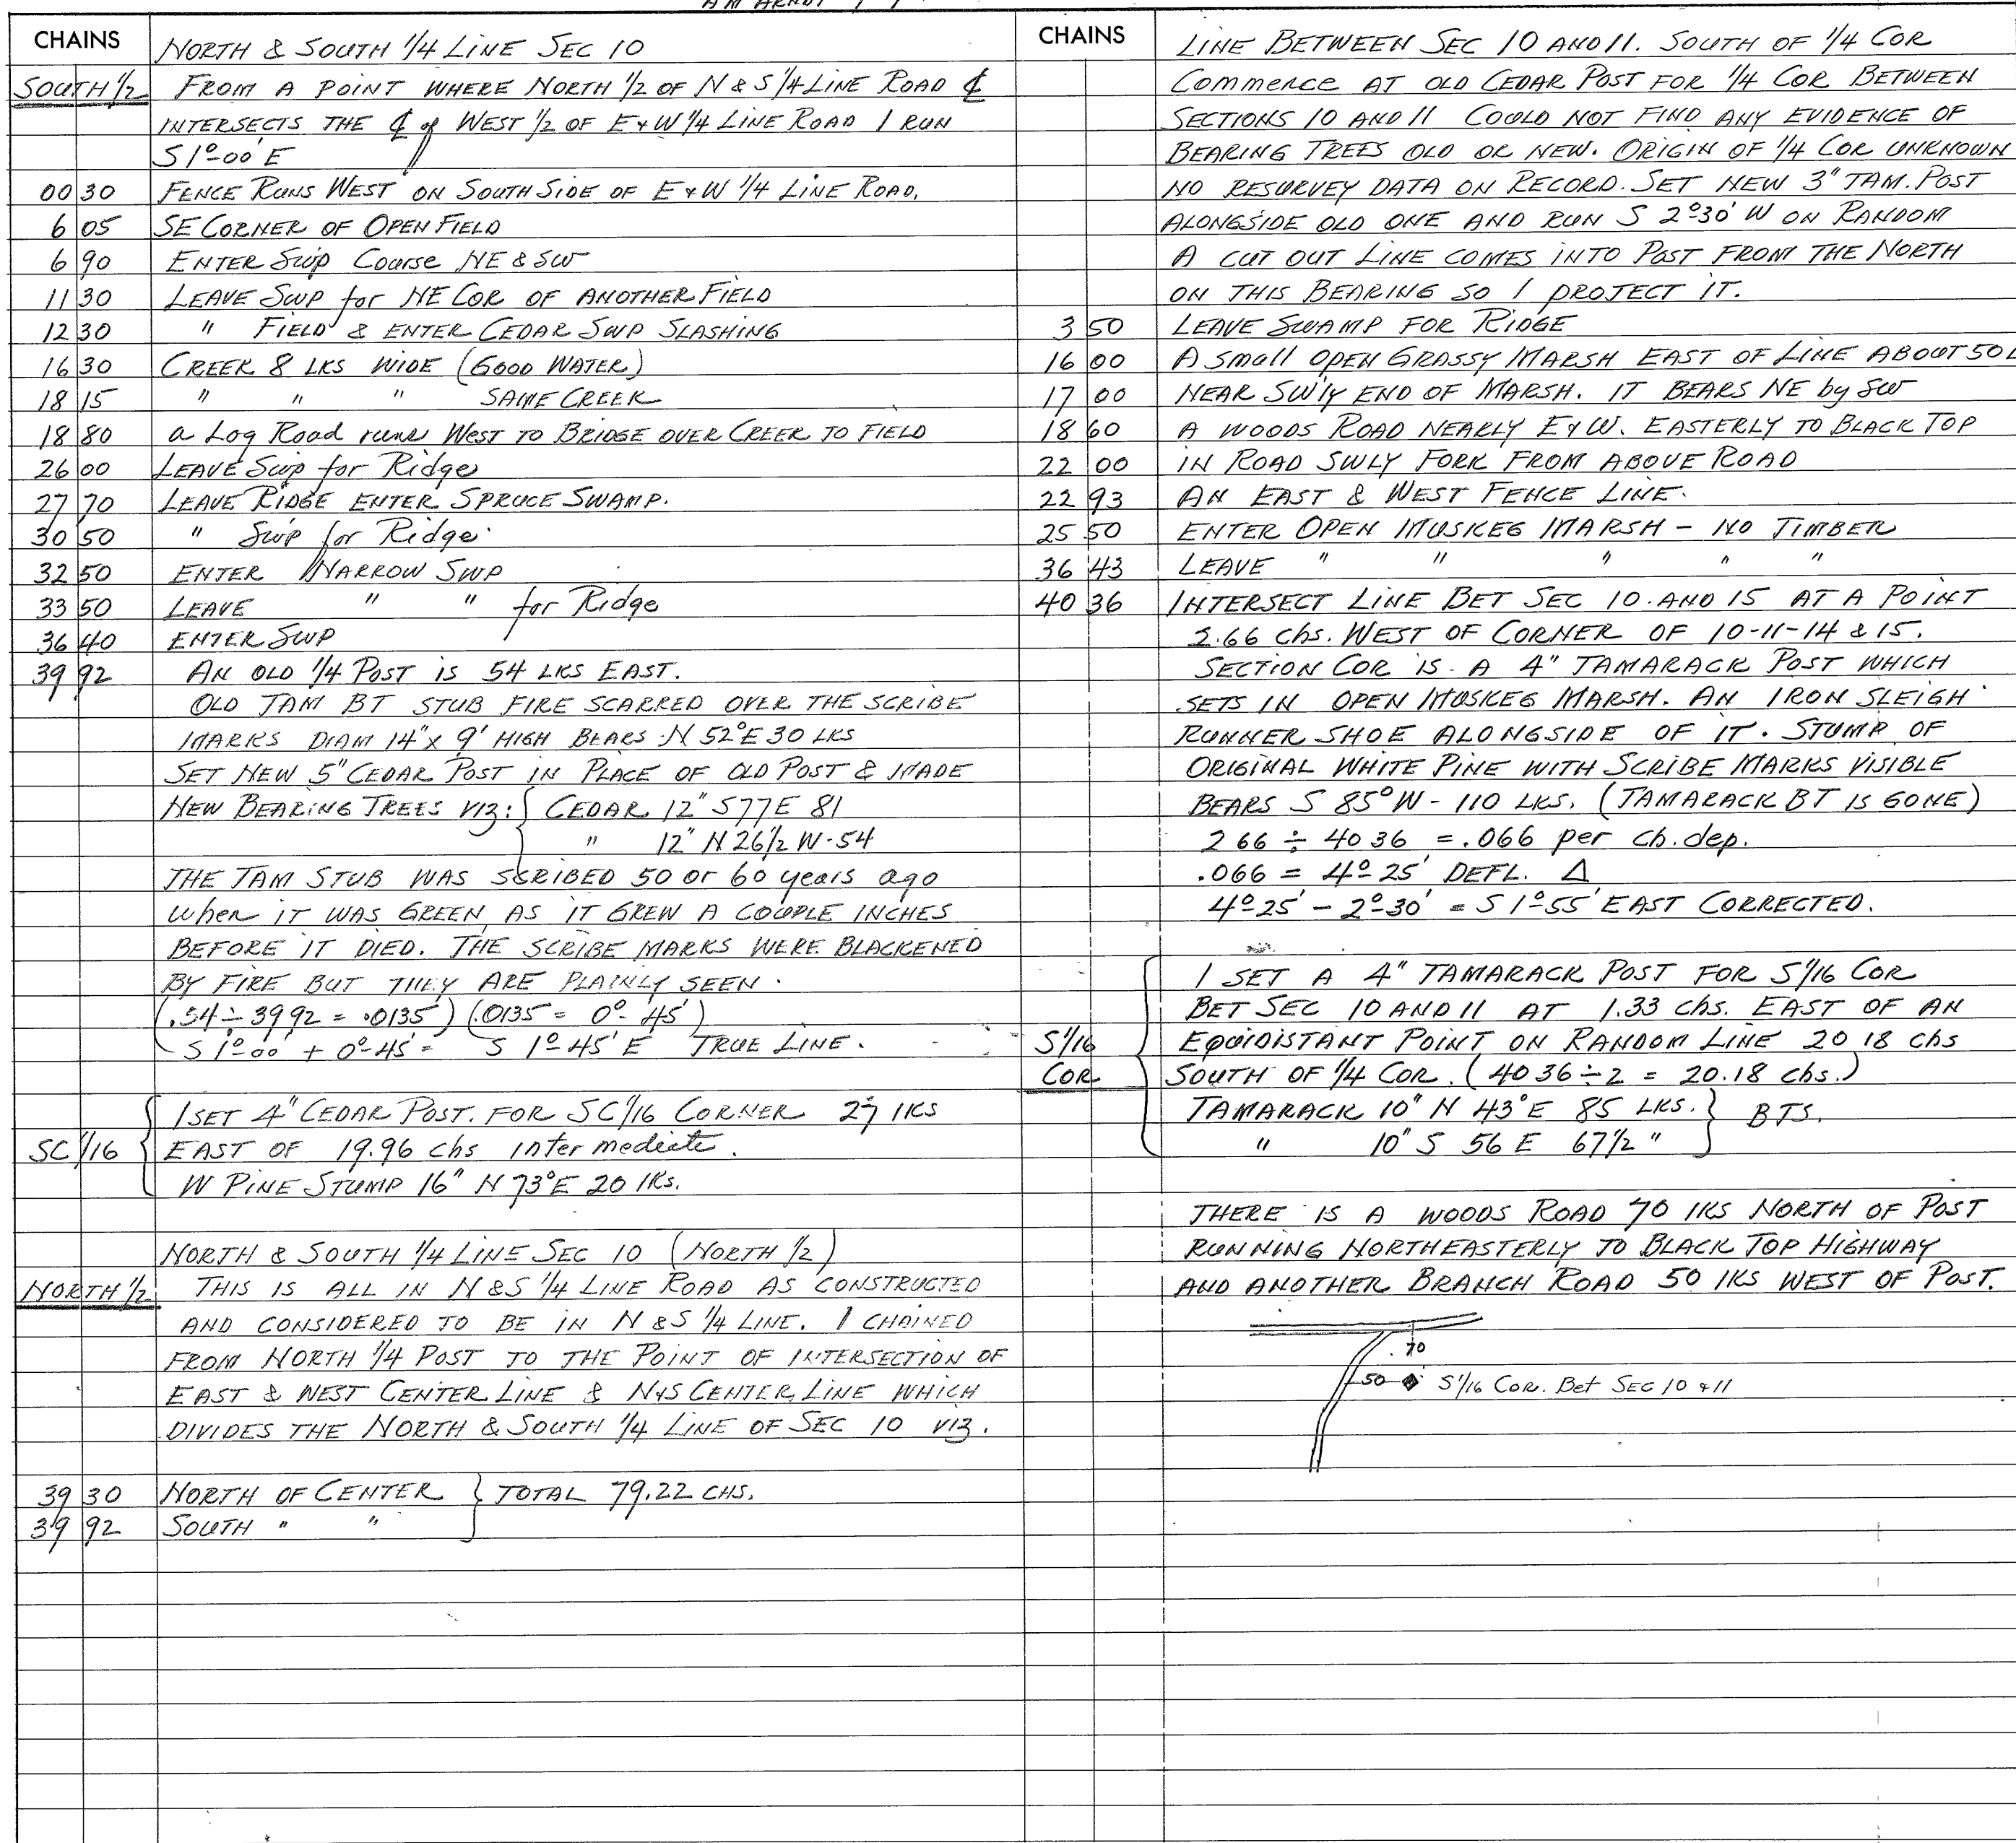 CHAINS NORTH & SOUTH 1/4 LINE SEC 10
SOUTH 1/2 FROM A POINT WHERE NORTH 1/2 OF N & S 1/4 LINE ROAD ℄
INTERSECTS THE ℄ of WEST 1/2 OF E & W 1/4 LINE ROAD I RUN
S 1°-00' E
00 30 FENCE RUNS WEST ON SOUTH SIDE OF E & W 1/4 LINE ROAD.
6 05 SE CORNER OF OPEN FIELD
6 90 ENTER Swp Course NE & SW
11 30 LEAVE SWP for NE COR OF ANOTHER FIELD
12 30 " FIELD & ENTER CEDAR SWP SLASHING
16 30 CREEK 8 LKS WIDE (GOOD WATER)
18 15 " " " SAME CREEK
18 80 a Log Road runs WEST TO BRIDGE OVER CREEK TO FIELD
26 00 LEAVE Swp for Ridge
27 70 LEAVE RIDGE ENTER SPRUCE SWAMP.
30 50 " Swp for Ridge
32 50 ENTER NARROW SWP
33 50 LEAVE " " for Ridge
36 40 ENTER SWP
39 92 AN OLD 1/4 POST IS 54 LKS EAST.
OLD TAM BT STUB FIRE SCARRED OVER THE SCRIBE
MARKS DIAM 14" x 9' HIGH BEARS N 52°E 30 LKS
SET NEW 5" CEDAR POST IN PLACE OF OLD POST & MADE
NEW BEARING TREES VIZ: { CEDAR 12" S77E 81
" 12" N 26 1/2 W-54
THE TAM STUB WAS SCRIBED 50 or 60 years ago
when IT WAS GREEN AS IT GREW A COUPLE INCHES
BEFORE IT DIED. THE SCRIBE MARKS WERE BLACKENED
BY FIRE BUT THEY ARE PLAINLY SEEN.
(.54 ÷ 39 92 = .0135) (.0135 = 0°-45')
S 1°-00' + 0°-45' = S 1°-45' E TRUE LINE.
I SET 4" CEDAR POST. FOR SC 1/16 CORNER 27 lKS
SC 1/16 EAST OF 19.96 chs inter mediate.
W PINE STUMP 16" N 73°E 20 lKs.
NORTH & SOUTH 1/4 LINE SEC 10 (NORTH 1/2)
NORTH 1/2 THIS IS ALL IN N & S 1/4 LINE ROAD AS CONSTRUCTED
AND CONSIDERED TO BE IN N & S 1/4 LINE. I CHAINED
FROM NORTH 1/4 POST TO THE POINT OF INTERSECTION OF
EAST & WEST CENTER LINE & N & S CENTER LINE WHICH
DIVIDES THE NORTH & SOUTH 1/4 LINE OF SEC 10 VIZ.
39 30 NORTH OF CENTER } TOTAL 79.22 CHS.
39 92 SOUTH " "
CHAINS LINE BETWEEN SEC 10 AND 11. SOUTH OF 1/4 COR
Commerce AT OLD CEDAR POST FOR 1/4 COR BETWEEN
SECTIONS 10 AND 11 COULD NOT FIND ANY EVIDENCE OF
BEARING TREES OLD OR NEW. ORIGIN OF 1/4 COR UNKNOWN
NO RESURVEY DATA ON RECORD. SET NEW 3" TAM. POST
ALONGSIDE OLD ONE AND RUN S 2°30' W ON RANDOM
A CUT OUT LINE COMES INTO POST FROM THE NORTH
ON THIS BEARING SO I PROTECT IT.
3 50 LEAVE SWAMP FOR RIDGE
16 00 A SMALL OPEN GRASSY MARSH EAST OF LINE ABOUT 50L
17 00 NEAR SW'ly END OF MARSH. IT BEARS NE by SW
18 60 A WOODS ROAD NEARLY E & W. EASTERLY TO BLACK TOP
22 00 IN ROAD SWLY FORK FROM ABOVE ROAD
22 93 AN EAST & WEST FENCE LINE.
25 50 ENTER OPEN MUSKEG MARSH - NO TIMBER
36 43 LEAVE " " " " "
40 36 INTERSECT LINE BET SEC 10 AND 15 AT A POINT
2.66 chs. WEST OF CORNER OF 10-11-14 & 15.
SECTION COR IS A 4" TAMARACK POST WHICH
SETS IN OPEN MUSKEG MARSH. AN IRON SLEIGH
RUNNER SHOE ALONGSIDE OF IT. STUMP OF
ORIGINAL WHITE PINE WITH SCRIBE MARKS VISIBLE
BEARS S 85° W - 110 LKS. (TAMARACK BT IS GONE)
2 66 ÷ 40 36 = .066 per ch. dep.
.066 = 4°25' DEFL. Δ
4°25' - 2°30' = S 1°55' EAST CORRECTED.
I SET A 4" TAMARACK POST FOR S 1/16 COR
BET SEC 10 AND 11 AT 1.33 chs. EAST OF AN
S 1/16 EQUIDISTANT POINT ON RANDOM LINE 20 18 chs
COR SOUTH OF 1/4 COR. (40 36 ÷ 2 = 20.18 chs.)
TAMARACK 10" N 43°E 85 LKS. } BTS.
" 10" S 56 E 67 1/2 "
THERE IS A WOODS ROAD 70 lKS NORTH OF POST
RUNNING NORTHEASTERLY TO BLACK TOP HIGHWAY
AND ANOTHER BRANCH ROAD 50 lKS WEST OF POST.
70
50 S 1/16 COR. Bet SEC 10 & 11